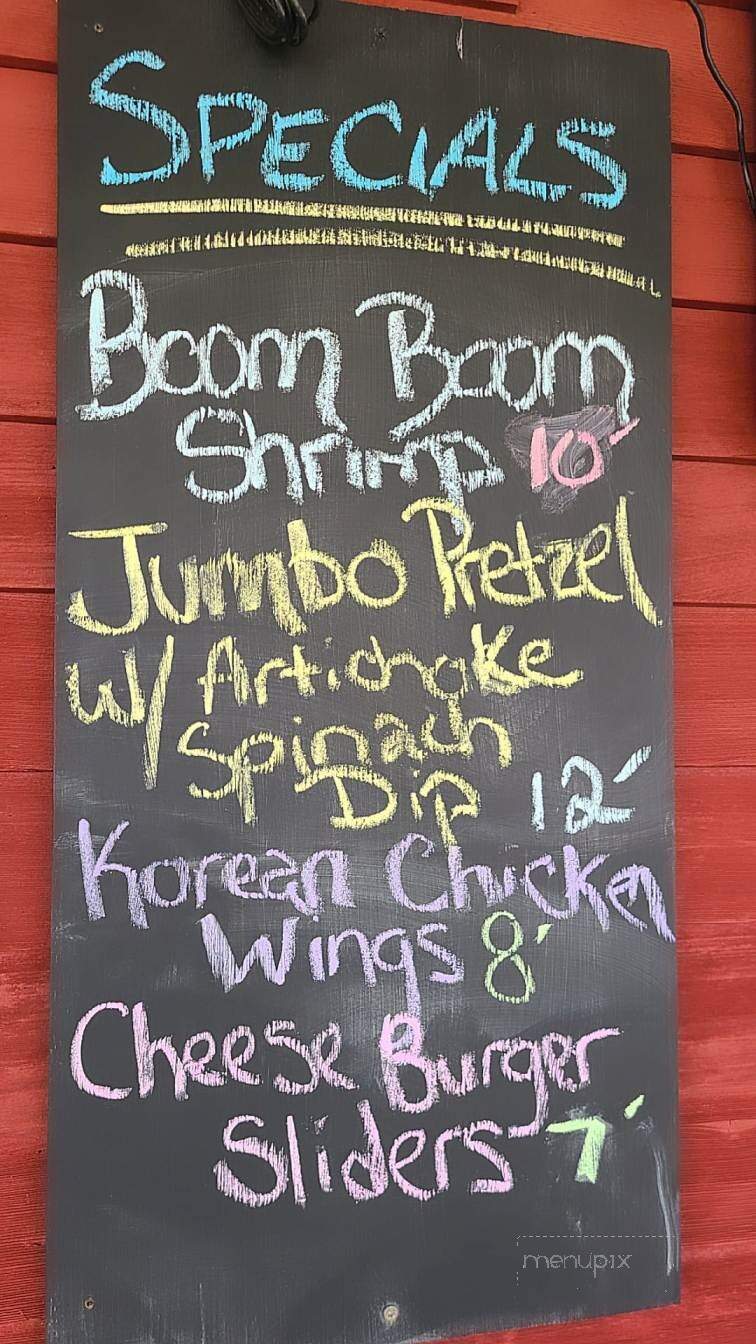 SPECIALS
Boom Boom
Shrimp 10-
Jumbo Pretzel
W/ Artichoke
Spinach
Dip 12-
Korean Chicken
Wings 8-
Cheese Burger
Sliders 7-
menupix